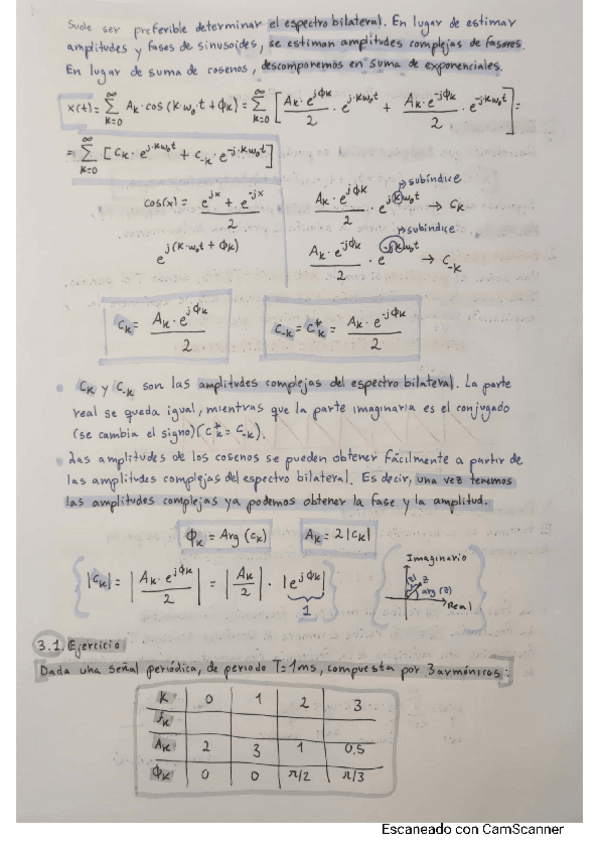 Suele ser preferible determinar el espectro bilateral. En lugar de estimar
amplitudes y fases de sinusoides, se estiman amplitudes complejas de fasores.
En lugar de suma de cosenos, descomponemos en suma de exponenciales.
x(t) = ∑_{k=0}^{∞} A_k · cos (k·ω₀·t + ϕ_k) = ∑_{k=0}^{∞} [ (A_k · e^{jϕ_k})/2 · e^{j·kω₀t} + (A_k · e^{-jϕ_k})/2 · e^{-j·kω₀t} ] =
= ∑_{k=0}^{∞} [ C_k · e^{j·kω₀t} + C_{-k} · e^{-j·kω₀t} ]
cos(x) = (e^{jx} + e^{-jx})/2
e^{j(k·ω₀t + ϕ_k)}
subíndice
(A_k · e^{jϕ_k})/2 · e^{jkω₀t} → C_k
subíndice
(A_k · e^{-jϕ_k})/2 · e^{-jkω₀t} → C_{-k}
C_k = (A_k · e^{jϕ_k})/2
C_{-k} = C_k^* = (A_k · e^{-jϕ_k})/2
C_k y C_{-k} son las amplitudes complejas del espectro bilateral. La parte
real se queda igual, mientras que la parte imaginaria es el conjugado
(se cambia el signo) (C_k^* = C_{-k}).
Las amplitudes de los cosenos se pueden obtener fácilmente a partir de
las amplitudes complejas del espectro bilateral. Es decir, una vez tenemos
las amplitudes complejas ya podemos obtener la fase y la amplitud.
ϕ_k = Arg (C_k)
A_k = 2|C_k|
|C_k| = |(A_k · e^{jϕ_k})/2| = |A_k/2| · |e^{jϕ_k}|
1
Imaginario
|z|
z
arg (z)
Real
3.1. Ejercicio
Dada una señal periódica, de periodo T=1ms, compuesta por 3 armónicos:
k 0 1 2 3
f_k
A_k 2 3 1 0.5
ϕ_k 0 0 π/2 π/3
Escaneado con CamScanner